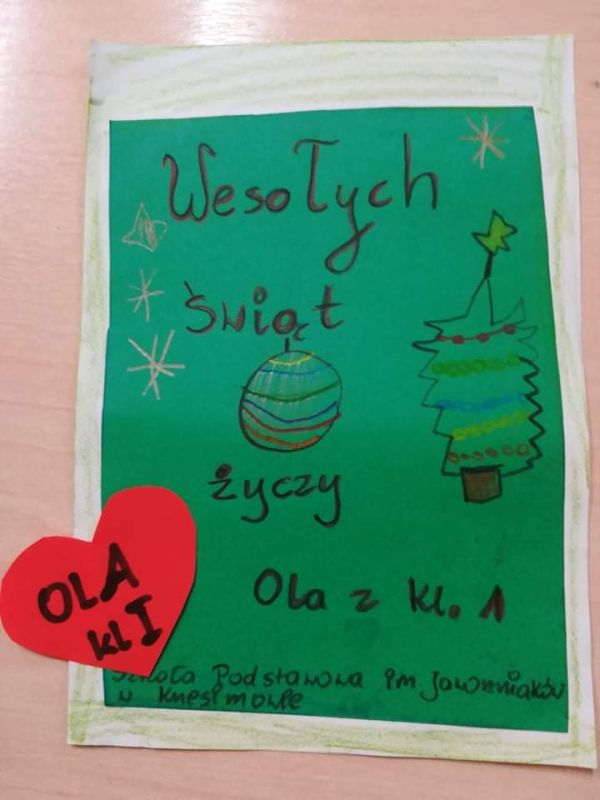 Wesołych
Świąt
życzy
Ola z kl. 1
OLA
kl I
Szkoła Podstawowa im. Jaworniaków
w